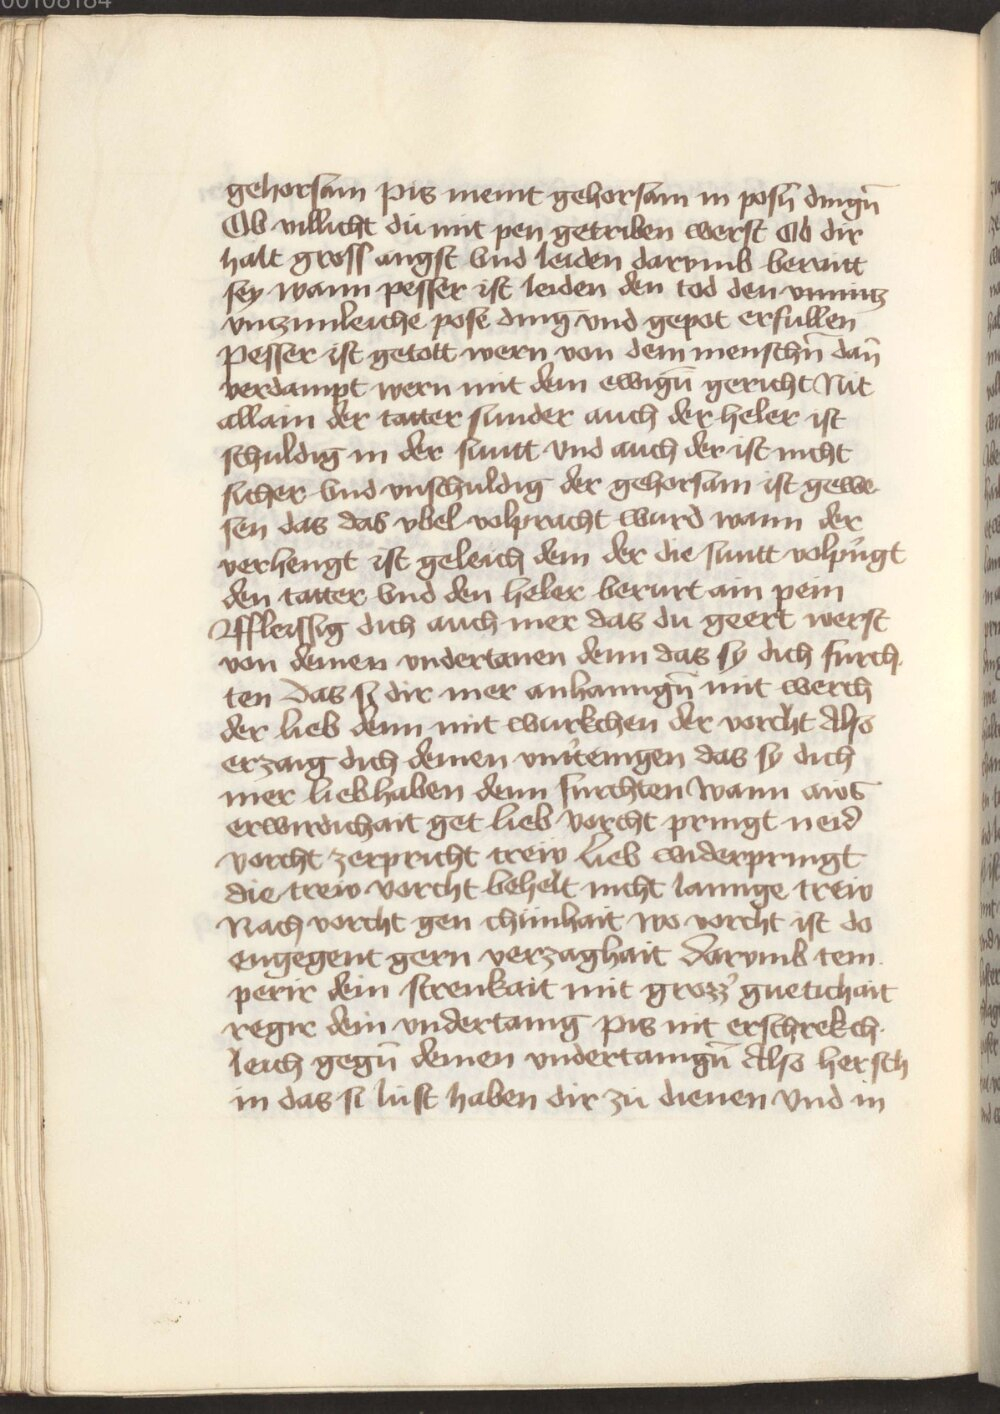 00108184
gehorsam pis nemt gehorsam in posn̄ dingn̄
Ob villicht dü mit pen getriben werst Ob dir
halt gross angst vnd leiden darvmb beraitt
sey wann pesser ist leiden den tod den vnnütz
vntzimleiche pose ding vnd gepot erfullen
pesser ist getott wern von dem menschn̄ dan̄
verdampt wern mit dem ewign̄ gericht Nit
allain der tatter sunder auch der heler ist
schuldig in der suntt vnd auch der ist nicht
sicher vnd vnschuldig der gehorsam ist gewe-
sen das das vbel volpracht wurd wann der
verhengt ist geleich dem der die suntt volpringt
den tatter vnd den heler berürt ain pein
Affleissig dich auch mer das du geert werst
von deinen vndertanen denn das sy dich furch-
ten das sy dir mer anhanngn̄ mit werch
der lieb denn mit wurkchen der vorcht Also
erzaig dich deinen vnttenigen das sy dich
mer liebhaben denn furchten wann aws
erwirdichait get lieb vorcht pringt neid
vorcht zerpricht trew lieb widerpringt
die trew vorcht behelt nicht lannge trew
Nach vorcht gen chünhait wo vorcht ist do
engegent gern verzaghait darvmb tem-
perir dein strenkait mit grozz' guetichait
regir dein vndertanig pis nit erschrekch-
leich gegn̄ deinen vndertanign̄ Also hersch
in das si lust haben dir zü dienen vnd in